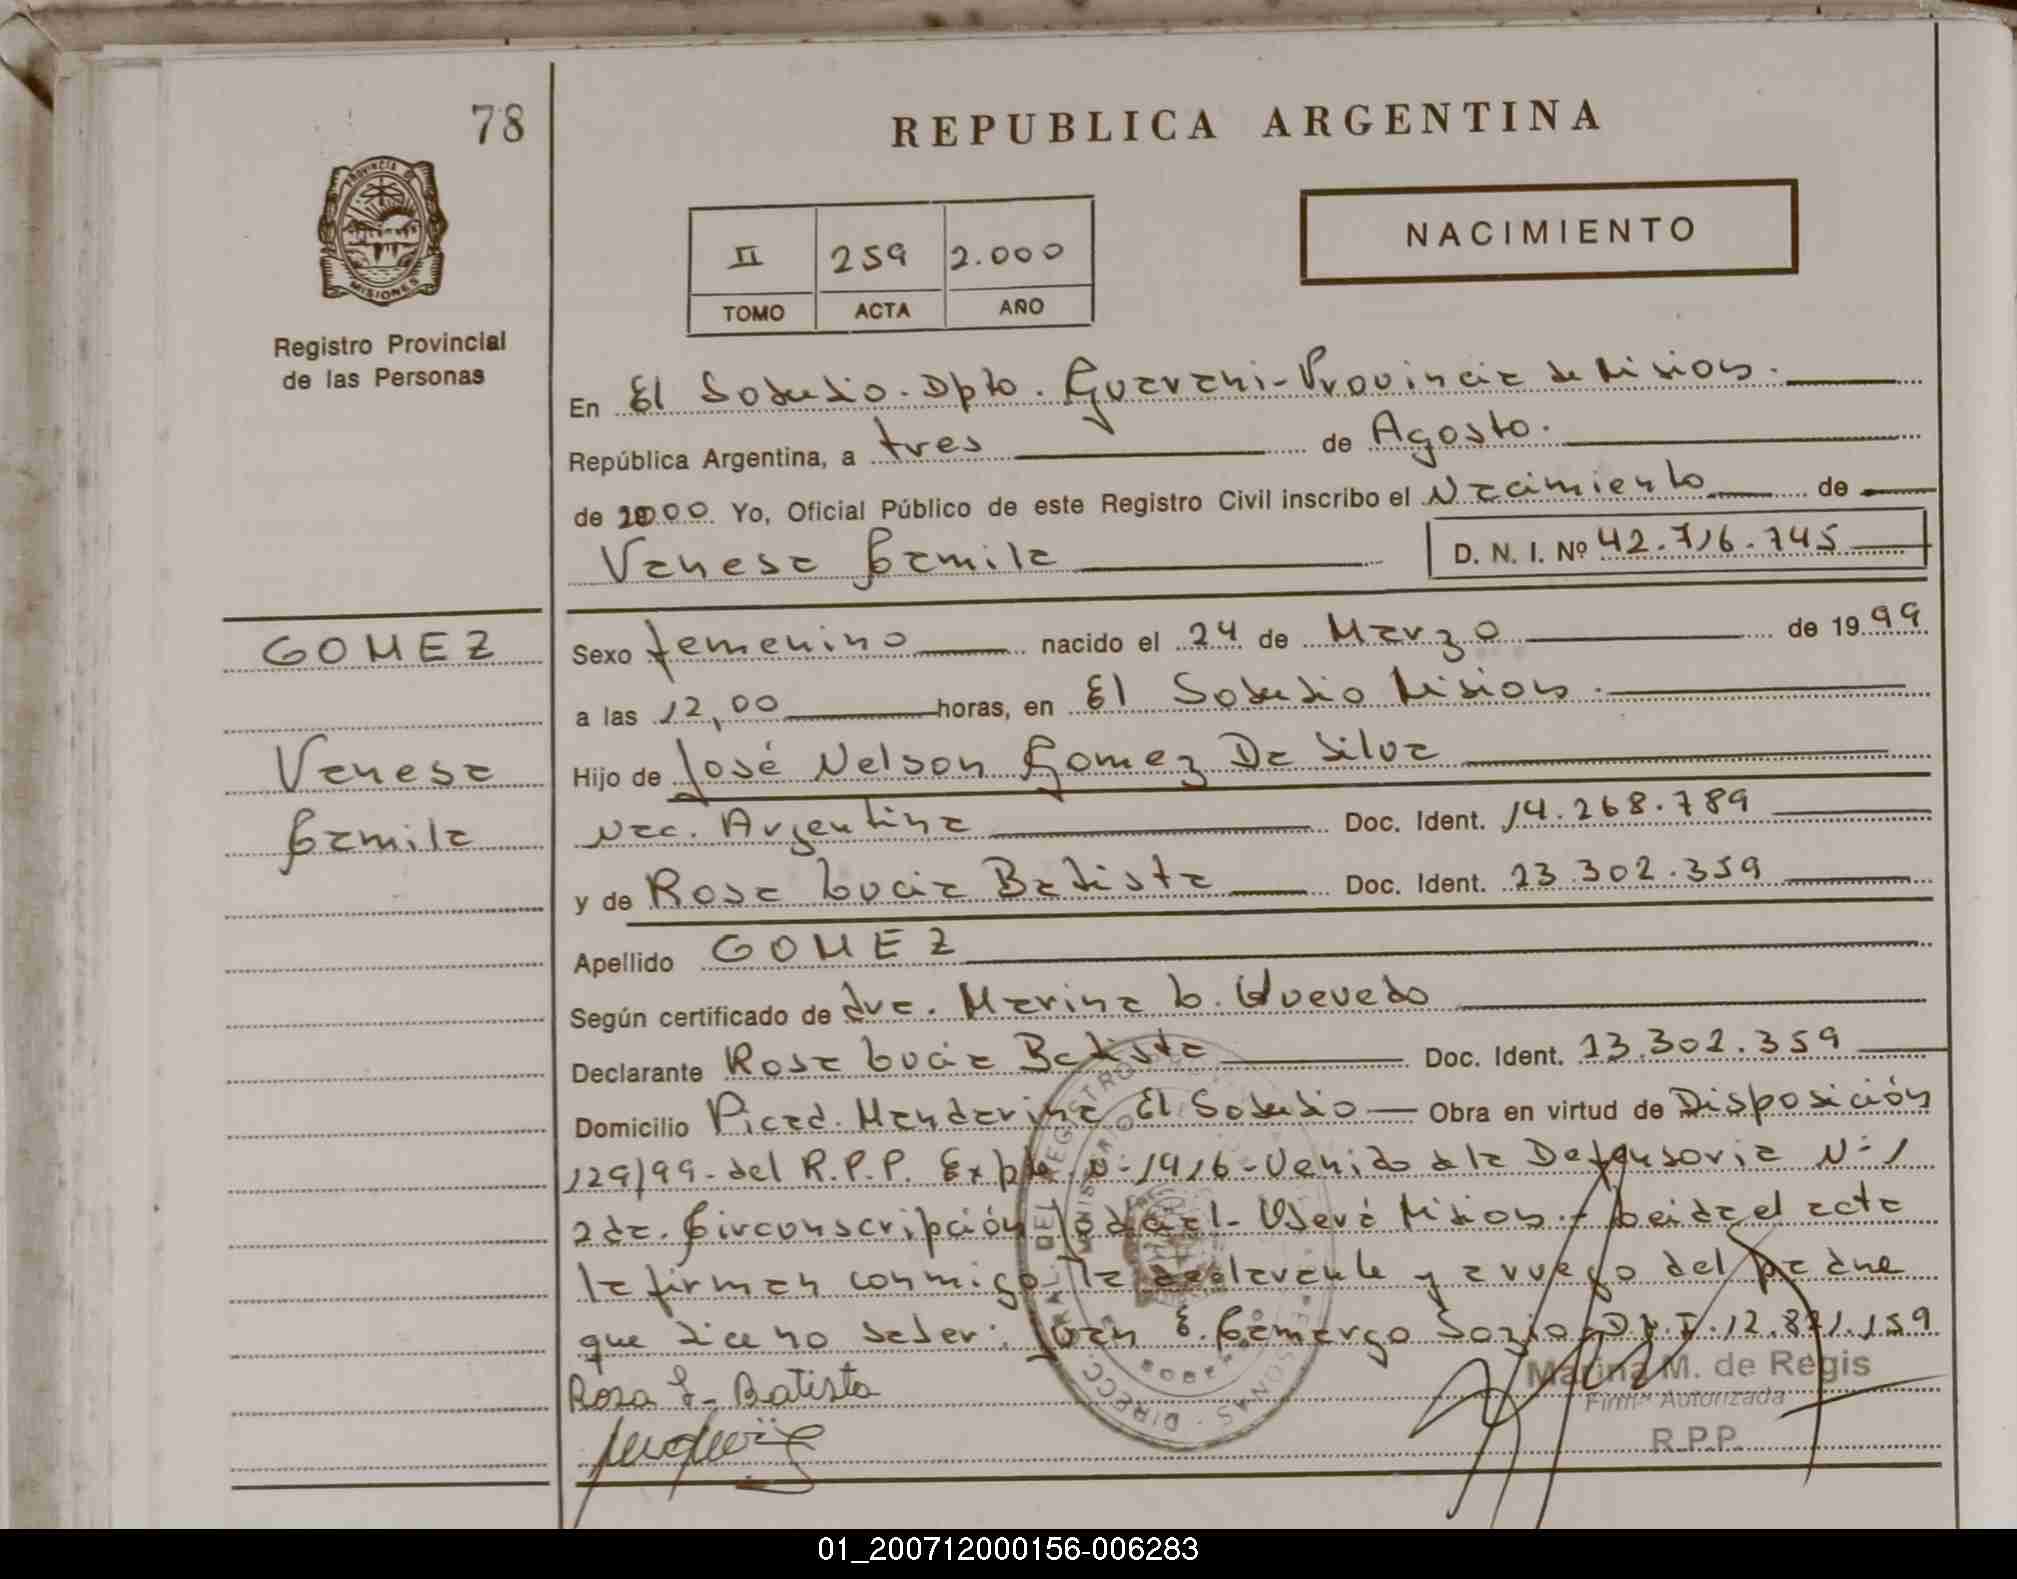 78
REPUBLICA ARGENTINA
PROVINCIA DE
MISIONES
Registro Provincial
de las Personas
II 259 2.000
TOMO ACTA AÑO
NACIMIENTO
En El Soberbio. Dpto. Guarani - Provincia de Misiones.
República Argentina, a tres de Agosto.
de 2000 Yo, Oficial Público de este Registro Civil inscribo el Nacimiento de
Vanesa Camila
D. N. I. Nº 42.716.745
GOMEZ
Vanesa
Camila
Sexo femenino nacido el 24 de Marzo de 1999
a las 12,00 horas, en El Soberbio Misiones.
Hijo de José Nelson Gomez Da Silva
Nac. Argentina Doc. Ident. 14.268.789
y de Rosa Lucia Batista Doc. Ident. 23.302.359
Apellido GOMEZ
Según certificado de dra. Marina L. Quevedo
Declarante Rosa Lucia Batista Doc. Ident. 23.302.359
Domicilio Picad. Mandarina El Soberbio - Obra en virtud de Disposición
129/99 - del R.P.P. Expte. Nº 1916 - Venido de la Defensoria Nº 1
2da. Circunscripción Judicial - Oberá Misiones - Leida el acta
la firman conmigo la declarante y a ruego del padre
que dice no saber: Juan E. Camargo Sozio D.N.I. 12.821.159
Rosa L. Batista
Marina M. de Regis
Firma Autorizada
R.P.P.
01_200712000156-006283